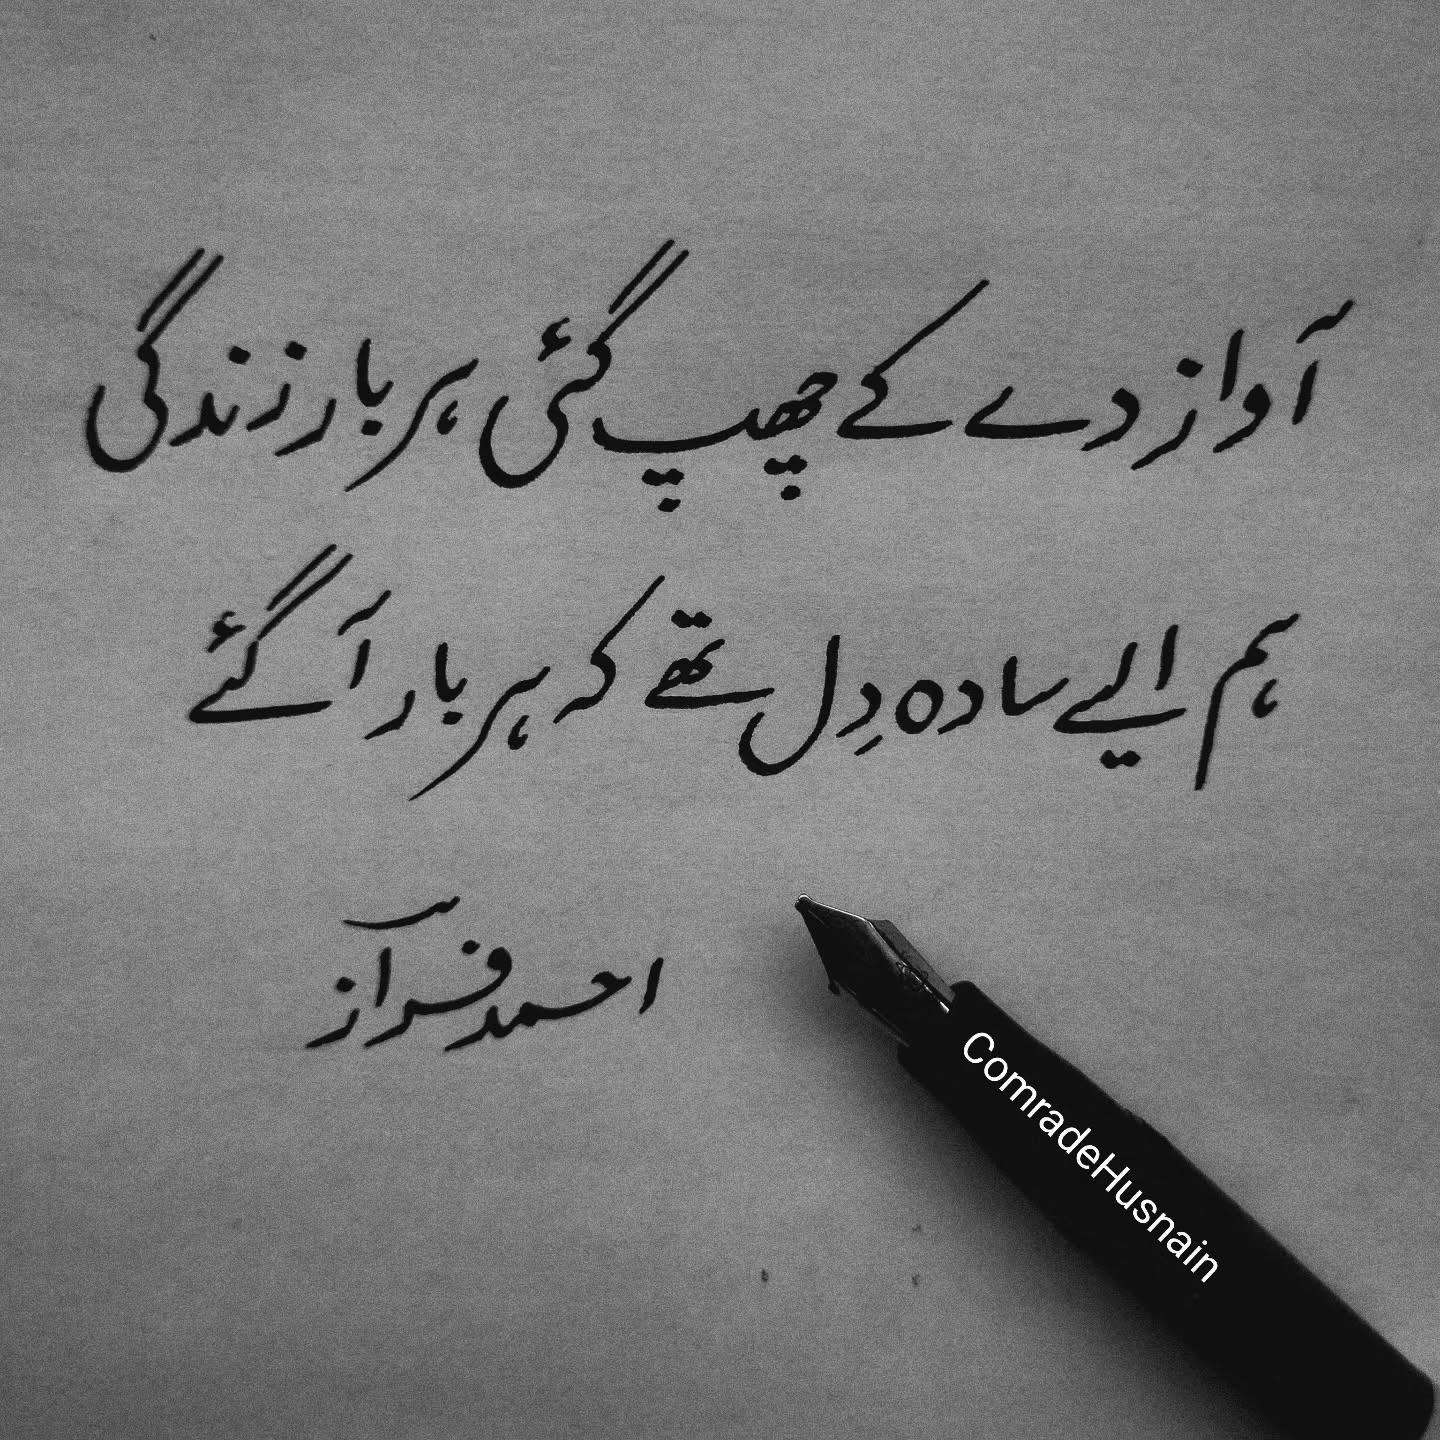 آواز دے کے چھپ گئی ہر بار زندگی
ہم ایسے سادہ دِل تھے کہ ہر بار آ گئے
احمد فراز
ComradeHusnain